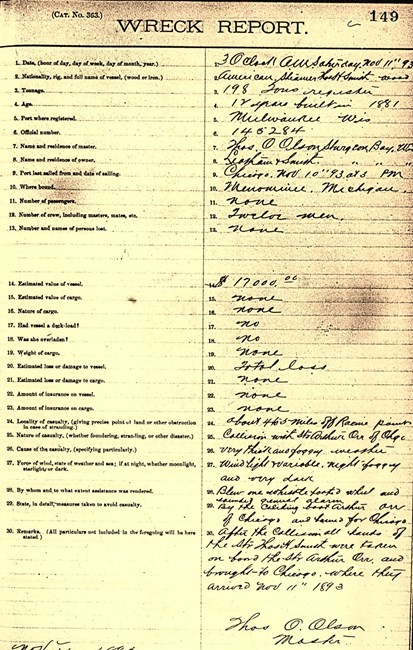 (CAT. NO. 363.)
149
WRECK REPORT.
1. Date, (hour of day, day of week, day of month, year.) 1. 3 O Clock AM Saturday, Nov 11" 93
2. Nationality, rig, and full name of vessel, (wood or iron.) 2. American, Steamer Thos H Smith wood
3. Tonnage. 3. 198 Tons register
4. Age. 4. 12 years built in 1881
5. Port where registered. 5. Milwaukee Wis
6. Official number. 6. 145284
7. Name and residence of master. 7. Thos. O Olson Sturgeon Bay, Wis
8. Name and residence of owner. 8. Leatham & Smith " " "
9. Port last sailed from and date of sailing. 9. Chicago. Nov 10" 93 at 3 PM
10. Where bound. 10. Menominee, Michigan.
11. Number of passengers. 11. none
12. Number of crew, including masters, mates, etc. 12. Twelve men.
13. Number and names of persons lost. 13. None
14. Estimated value of vessel. 14. $ 17000.00
15. Estimated value of cargo. 15. none
16. Nature of cargo. 16. none
17. Had vessel a deck-load? 17. no
18. Was she overladen? 18. no
19. Weight of cargo. 19. None
20. Estimated loss or damage to vessel. 20. Total loss
21. Estimated loss or damage to cargo. 21. none
22. Amount of insurance on vessel. 22. none
23. Amount of insurance on cargo. 23. none
24. Locality of casualty, (giving precise point of land or other obstruction in case of stranding.) 24. about 4 & 5 miles off Racine point
25. Nature of casualty, (whether foundering, stranding, or other disaster.) 25. Collision with Str Arthur Orr of Chgo
26. Cause of the casualty, (specifying particularly.) 26. Very thick and foggy weather
27. Force of wind, state of weather and sea; if at night, whether moonlight, starlight, or dark. 27. Wind light variable, night foggy
and very dark
28. By whom and to what extent assistance was rendered. 28. Blew one whistle
alarm
29. State, in detail, measures taken to avoid casualty. 29. By the Colliding boat Arthur Orr
of Chicago and bound for Chicago
30. Remarks. (All particulars not included in the foregoing will be here stated.) 30. After the Collision all hands of
the Str Thos H Smith were taken
on board the Str Arthur Orr. and
brought to Chicago. where they
arrived Nov 11" 1893
Thos O. Olson
Master